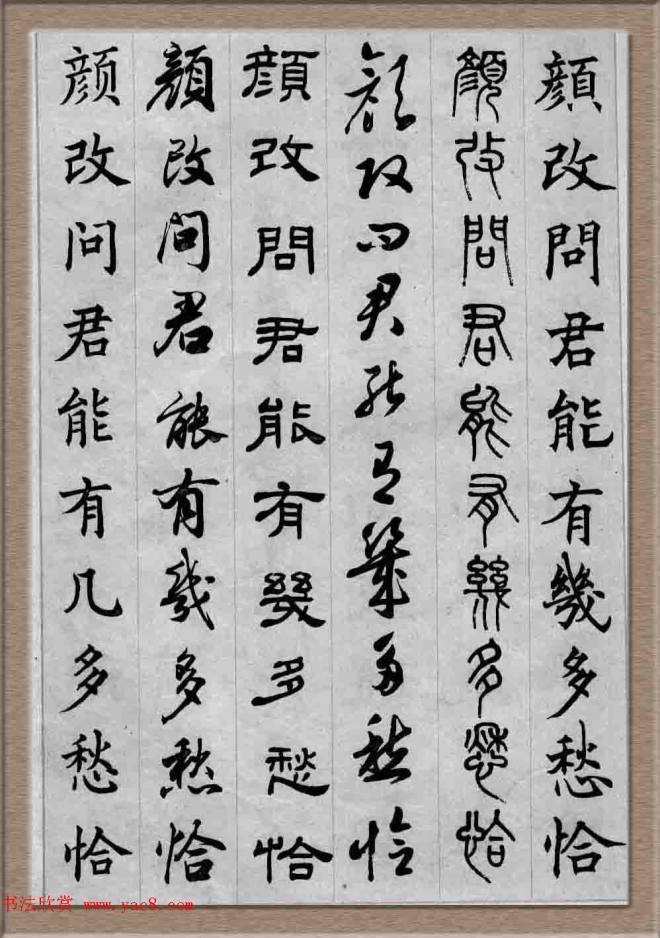 顏改問君能有幾多愁恰
顏改問君能有幾多愁恰
顏改問君能有幾多愁恰
顏改問君能有幾多愁恰
顏改問君能有幾多愁恰
颜改问君能有几多愁恰
书法欣赏 www.yac8.com